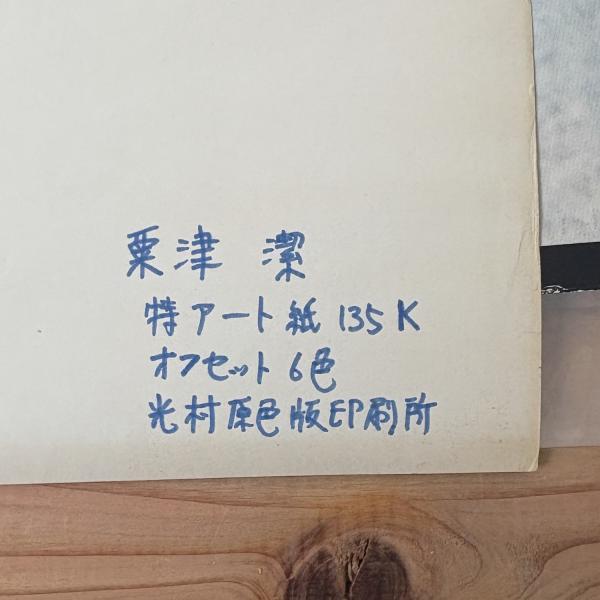 粟津 潔
特アート紙 135K
オフセット 6色
光村原色版印刷所